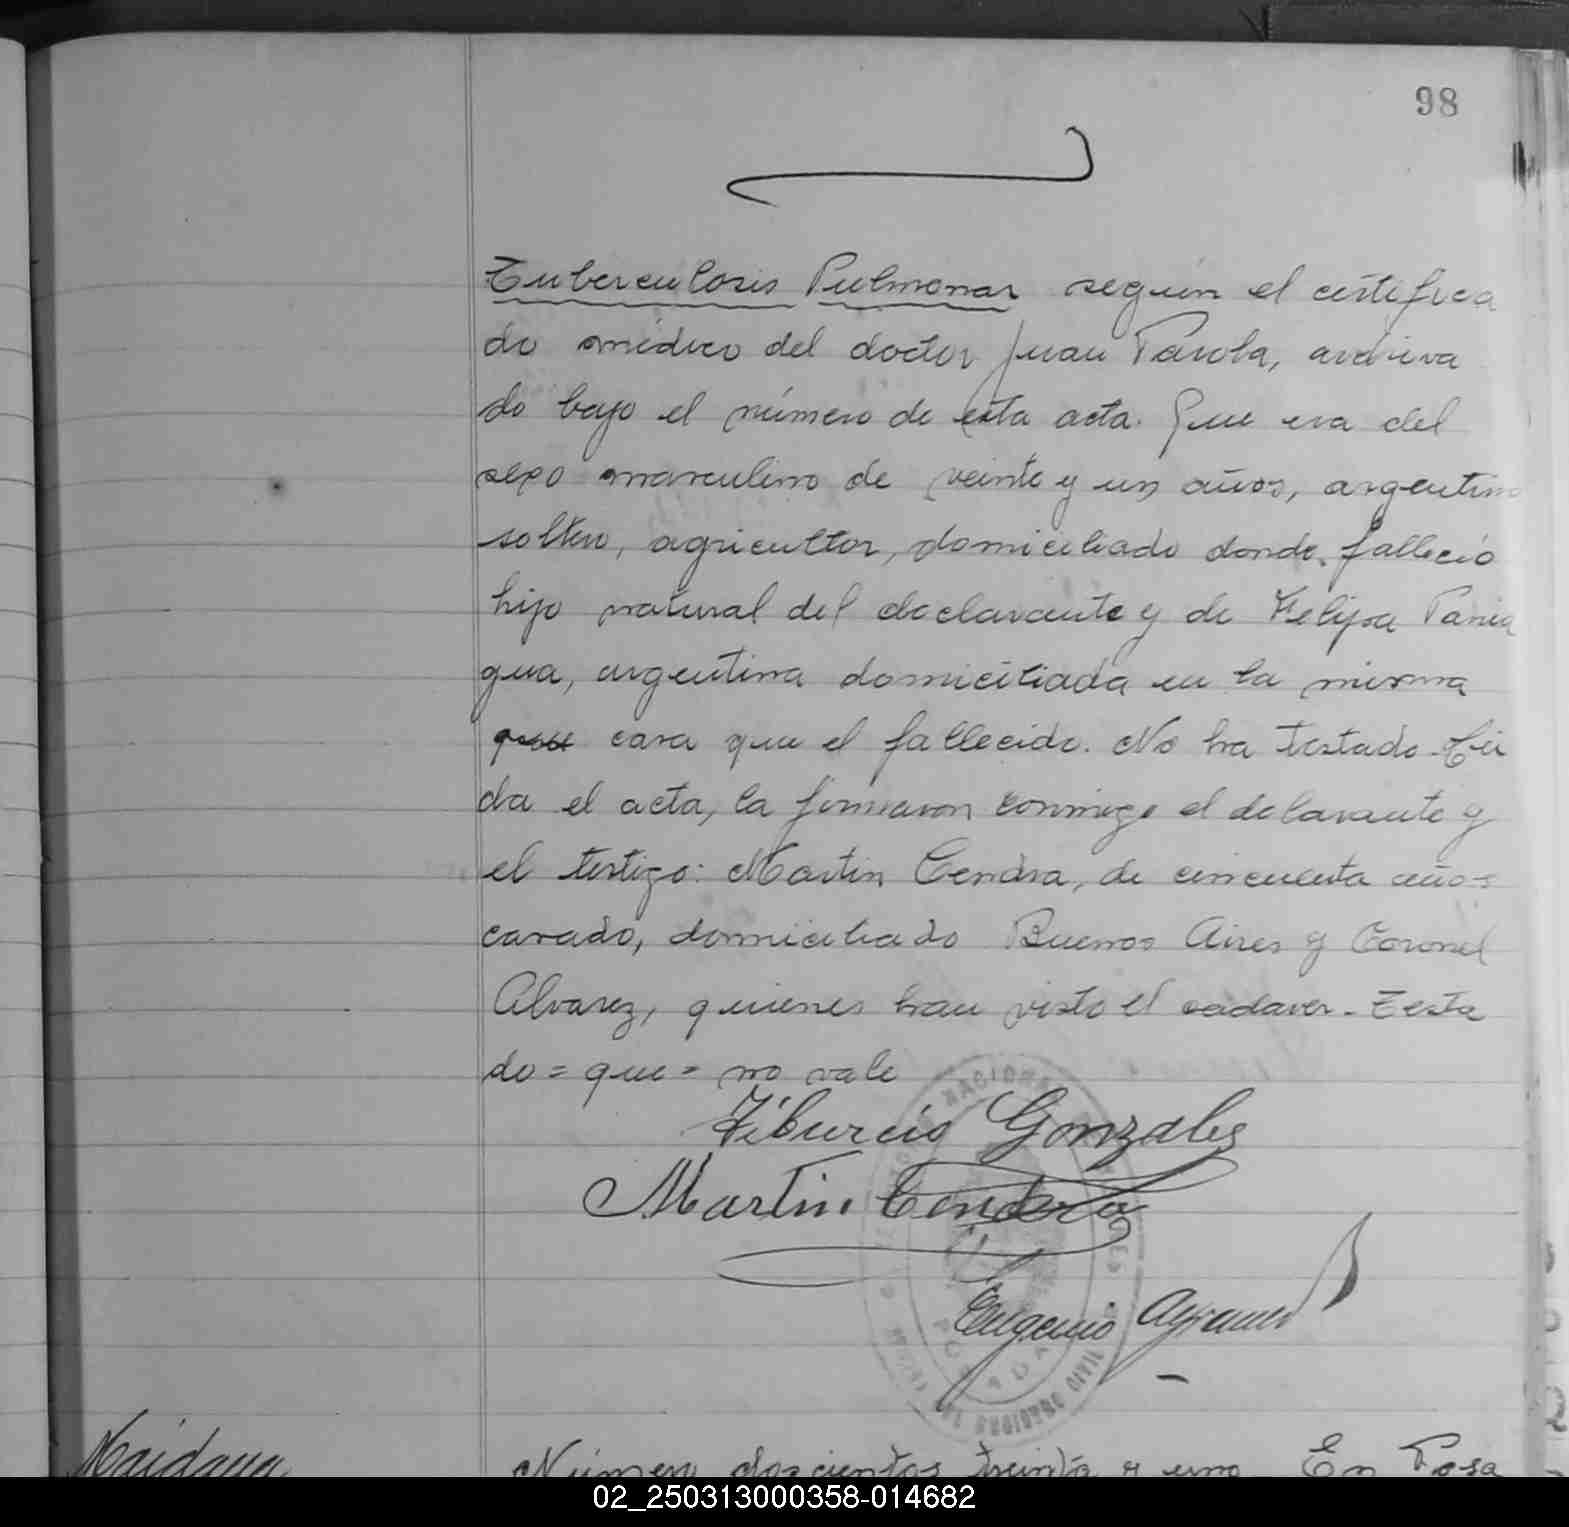 98
Tuberculosis Pulmonar según el certifica
do médico del doctor Juan Parola, archiva
do bajo el número de esta acta. Que era del
sexo masculino de veinte y un años, argentino
soltero, agricultor, domiciliado donde falleció
hijo natural del declarante y de Felipa Pania
gua, argentina domiciliada en la misma
que casa que el fallecido. No ha testado. Leí
da el acta, la firmaron conmigo el delarante y
el testigo: Martin Cendra, de cincuenta años
casado, domiciliado Buenos Aires y Coronel
Alvarez, quienes han visto el cadaver. Testa
do = que = no vale
Tiburcio Gonzales
Martin Cendra
Eugenio
REGISTRO CIVIL
Maidana
Número doscientos treinta y uno. En Posa
02_250313000358-014682